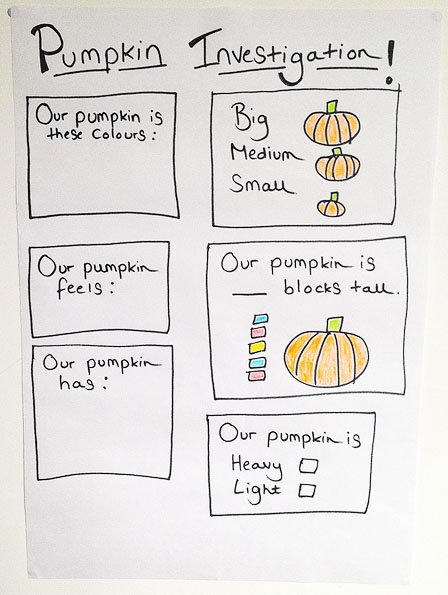 Pumpkin Investigation!
Our pumpkin is
these colours:
Big
Medium
Small
Our pumpkin
feels:
Our pumpkin is
___ blocks tall.
Our pumpkin
has:
Our pumpkin is
Heavy
Light